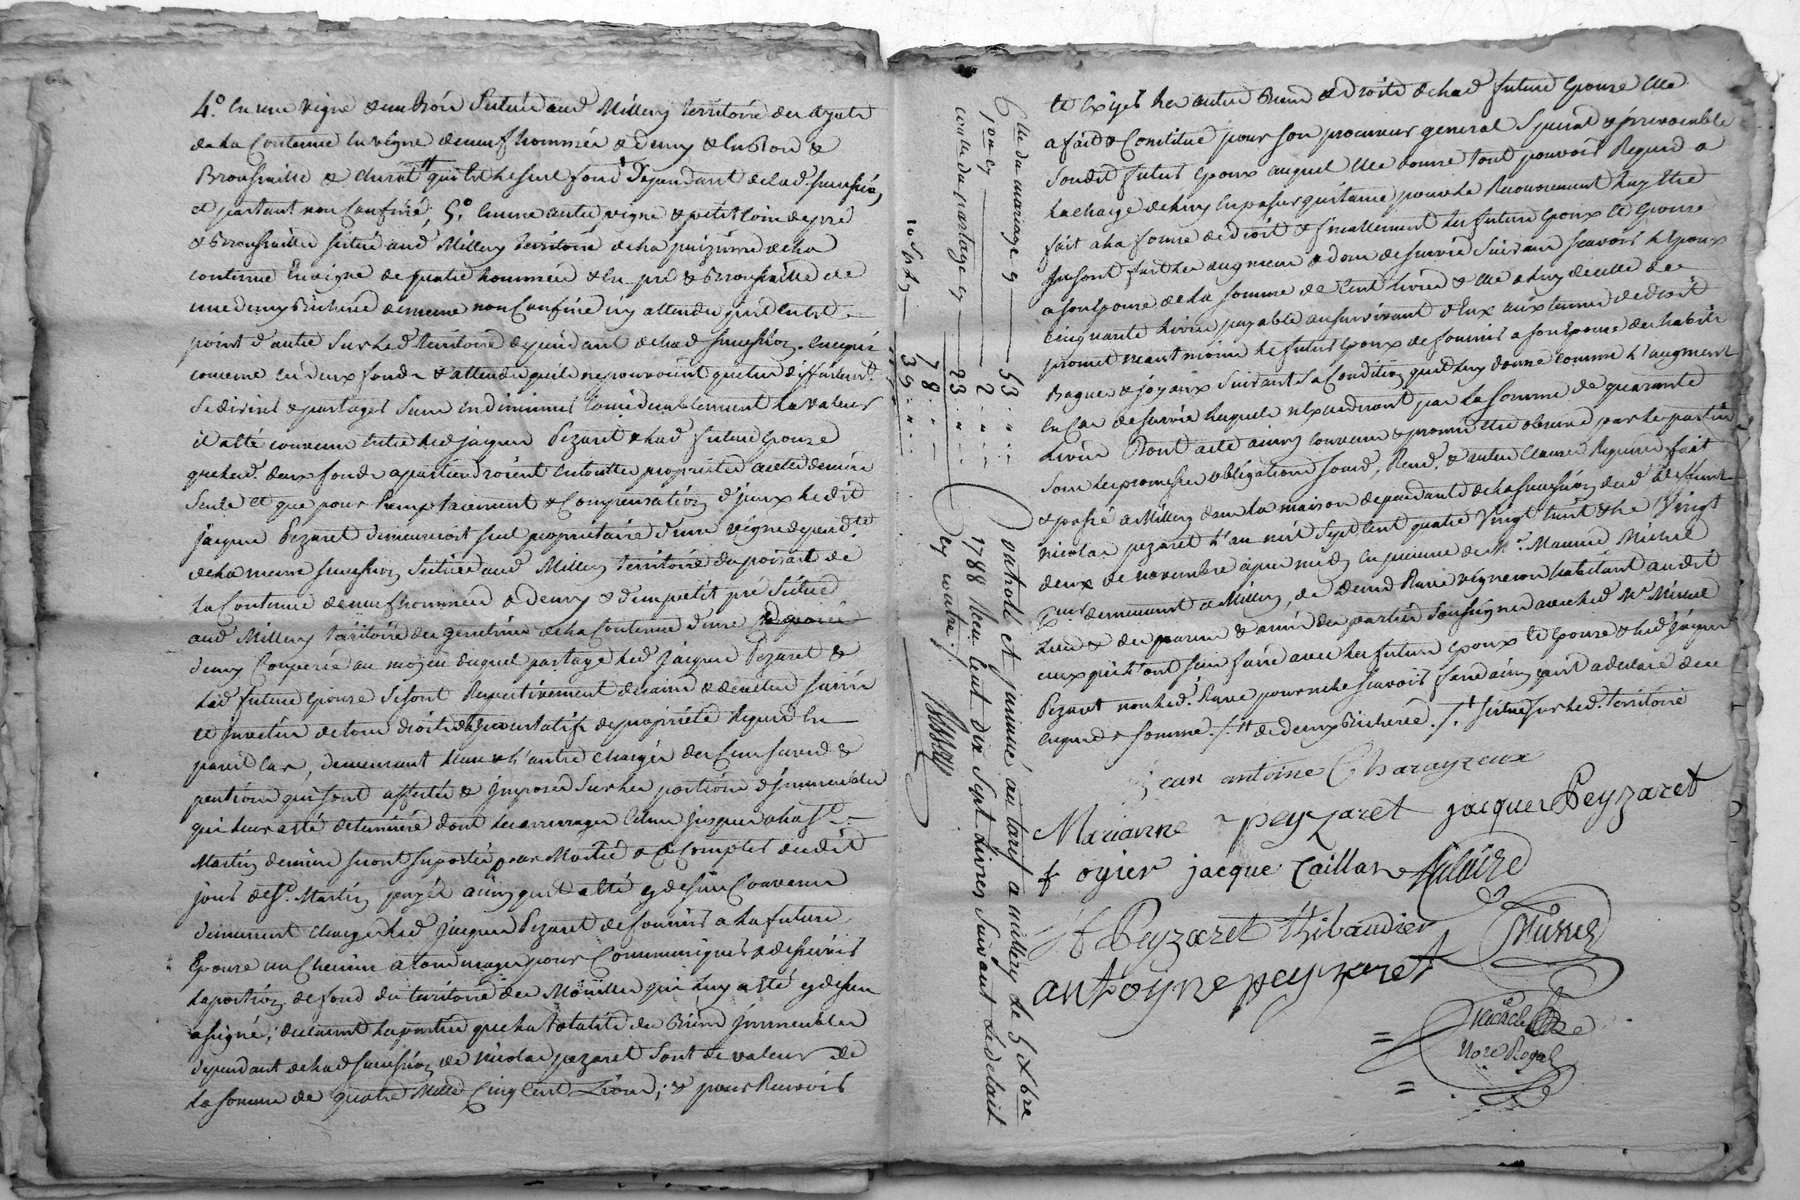 4.° en une vigne environ située aud. Millery territoire des ayats
de la contenue en vigne de neuf hommées & demy & en bois &
Broussaille & c'est tout qui est le seul fond dépendant de lad. succession
et partant non confiné; 5.° en une autre vigne & petit coin de pré
& Broussailles située aud. Millery territoire de la
contenue en vigne de quatre hommées & en pré & Broussaille de
une demy Bicherée de meme non confiné icy attendu qu'il n'est
point d'autre sur led. territoire dépendant de lad. succession. en ce qui
concerne ces deux fonds & attendu qu'ils ne pourroient que très difficilement
se diviser & partager sans en diminuer considerablement la valeur
il a été convenu entre led. jacques Pezaret & lad. future épouse
que led. deux fonds apartiendroient en toutte proprieté à cette derniere
seule et que pour remplacement & compensation d'yceux ledit
jacques Pezaret demeureroit seul propriétaire d'une vigne dépend.te
de la meme succession située aud. Millery territoire du poirat de
la contenue de neuf hommées & demy & d'un petit pré situé
aud. Millery territoire des genetines de la contenue d'une
demy couperée au moyen duquel partage led. jacques Pezaret &
lad. future épouse se sont respectivement desaisis & devetus saisis
et investus de tous droits de proprieté requis en
pareil cas, demeurant l'une & l'autre chargés des cens servis &
pentions qui sont affectés & imposés sur les portions d'immeubles
qui leur a été determinée dont les arrerages échus jusques a la S.t
Martin derniere seront suportés par Moitié & à compter dudit
jour de S.t Martin payés ainsy qu'il a été cy dessus convenu
demeurant chargé led. jacques Pezaret de fournir a la future
Epouse un chemin a tous usages pour communiquer & desservir
la portion de fond du territoire des Mouilles qui luy a été cy dessus
assigné; declarant les parties que la totalité des Biens immeubles
dependant de lad. succession de nicolas pezaret sont de valeur de
la somme de quatre mille cinq cent Livres; & pour recevoir
Ctle du mariage cy — 53 " "
pon cy — 2 " "
contle du partage cy — 23 " "
78 " "
10 s. p. l. cy — 39 " "
Controlé et insinué au tarif a millery le 5 Xbre
1788 Recu cent dix Sept Livres Suivant le detail
cy contre
et exiger les autres Biens & droits de lad. future épouse elle
a fait & constitué pour son procureur general special & irrevocable
sondit futur époux auquel elle donne tout pouvoir requis a
la charge de luy en passer quitance pour le recouvrement luy etre
fait a la forme de droit & finallement les futurs époux et épouse
se sont fait les augment & dons de survie suivant sçavoir l'époux
a son épouse de la somme de cent livres & elle a luy de celle de
cinquante livres payable au survivant d'eux aux termes de droit
promet neantmoins le futur époux de fournir a son épouse des habits
Bagues & joyaux suivant sa condition qu'il luy donne comme l'augment
en cas de survie lesquels n'excederont pas la somme de quarante
livres Dont acte ainsy convenu & promis etre observé par les parties
sous les promesses obligations soum. Renon. & autres clauses requises fait
& passé a Millery dans la maison dependante de la succession dud. defunt
nicolas pezaret l'an mil sept cent quatre vingt huit & le Vingt
deux de novembre apres midy en presence de M.r Maurice Michel
demeurant a Millery, de Denis Rave vigneron habitant audit
Lieu & des parens & amis des parties soussignés avec led. M.r Michel
ceux qui l'ont sceu faire avec les futurs époux et épouse & led. jacques
Pezaret non led. Rave pour ne le sçavoir faire ainsy qu'il a declaré de ce
enquis & sommé ./. de deux Bicherée ./. situé sur led. territoire
Jean antoine Charayzeux
Marianne peyzaret jacques Peyzaret
f ogier jacque Caillar
Peyzaret Thibaudier Michel
antoyne peyzaret
Nore Royal